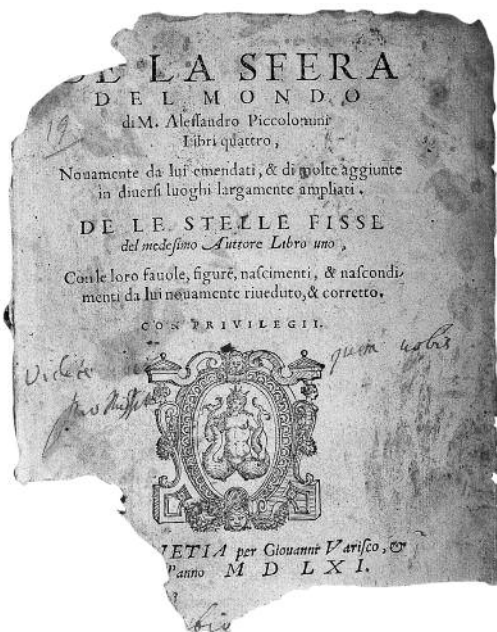 DE LA SFERA
DEL MONDO
di M. Alessandro Piccolomini
Libri quattro,
19
Nouamente da lui emendati, & di molte aggiunte
in diuersi luoghi largamente ampliati.
DE LE STELLE FISSE
del medesimo Auttore Libro uno,
Con le loro fauole, figure, nascimenti, & nascondi-
menti da lui nouamente riueduto, & corretto.
CON PRIVILEGII.
quem nobis
NETIA per Giouanni Varisco, &
l'anno M D LXI.